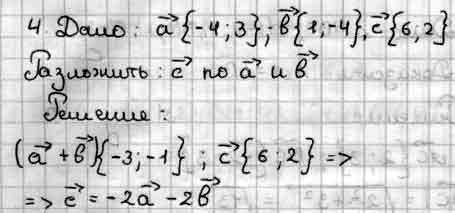 4. Дано: a⃗{-4; 3}, b⃗{1; -4}, c⃗{6; 2}
Разложить: c⃗ по a⃗ и b⃗
Решение:
(a⃗ + b⃗){-3; -1}; c⃗{6; 2} =>
=> c⃗ = -2a⃗ - 2b⃗